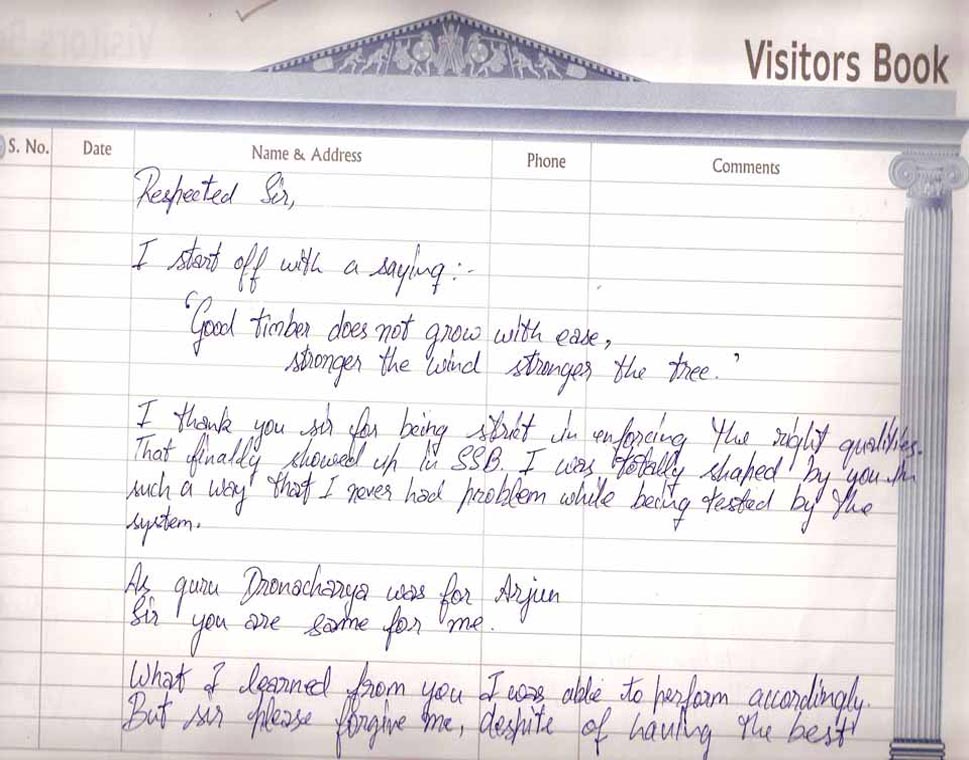 Visitors Book
S. No. Date Name & Address Phone Comments
Respected Sir,
I start off with a saying :-
'Good timber does not grow with ease,
stronger the wind stronger the tree.'
I thank you sir for being strict in enforcing the right qualities.
That finally showed up in SSB. I was totally shaped by you in
such a way that I never had problem while being tested by the
system.
As guru Dronacharya was for Arjun
Sir you are same for me.
What I learned from you I was able to perform accordingly.
But sir please forgive me, despite of having the best